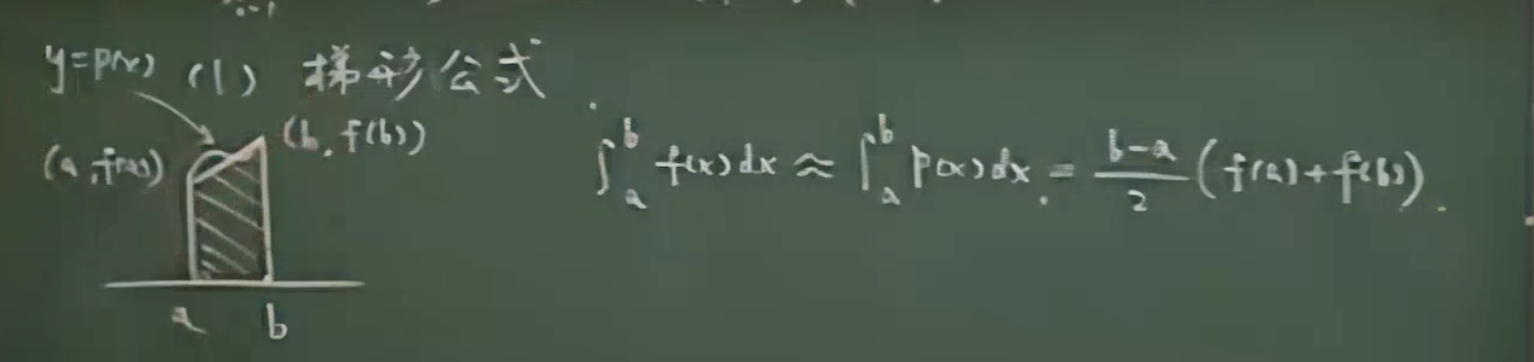 y=p(x) (1) 梯形公式
(a, f(a)) (b, f(b))
∫_a^b f(x)dx ≈ ∫_a^b p(x)dx = \frac{b-a}{2}(f(a)+f(b)).
a b